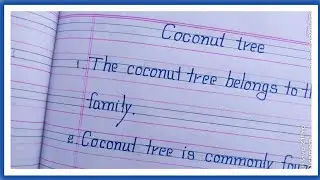 Coconut tree
1. The coconut tree belongs to
family.
2. Coconut tree is commonly